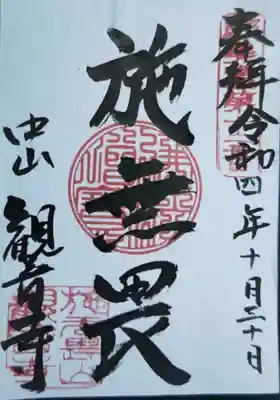 奉拝 令和四年十月三十日
施無畏
中山 観音寺